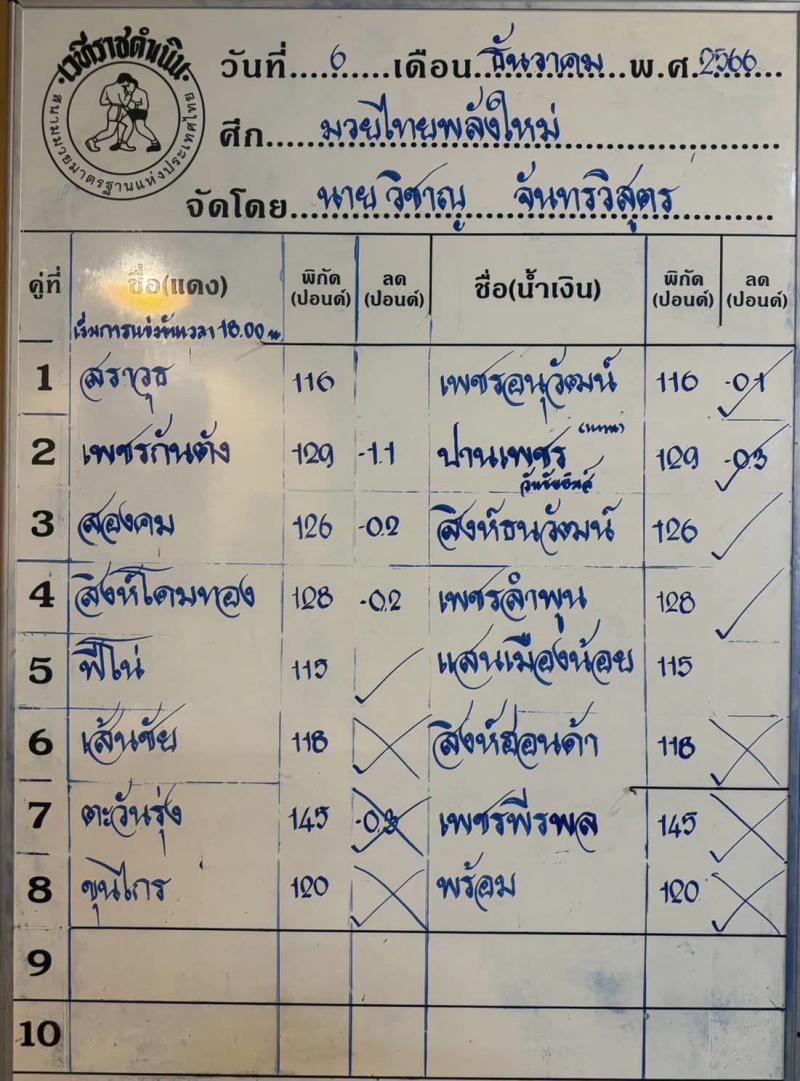 เวทีราชดำเนิน
สนามมวยมาตรฐานแห่งประเทศไทย
วันที่....6....เดือน..ธันวาคม..พ.ศ.2566
ศึก...มวยไทยพลังใหม่
จัดโดย...นายวิชาญ จันทรวิสูตร
คู่ที่ ชื่อ(แดง) พิกัด (ปอนด์) ลด (ปอนด์) ชื่อ(น้ำเงิน) พิกัด (ปอนด์) ลด (ปอนด์)
เริ่มการแข่งขันเวลา 18.00 น
1 สราวุธ 116 เพชรอนุวัฒน์ 116 -0.1
2 เพชรกันตัง 129 -1.1 ปานเพชร 129 -0.3
3 สองคม 126 -0.2 สิงห์ธนวัฒน์ 126
4 สิงห์โดมทอง 128 -0.2 เพชรลำพูน 128
5 ฟีโน่ 115 แสนเมืองน้อย 115
6 เส้นชัย 118 สิงห์ฮอนด้า 118
7 ตะวันรุ่ง 145 -0.3 เพชรพีรพล 145
8 ขุนไกร 120 พร้อม 120
9
10